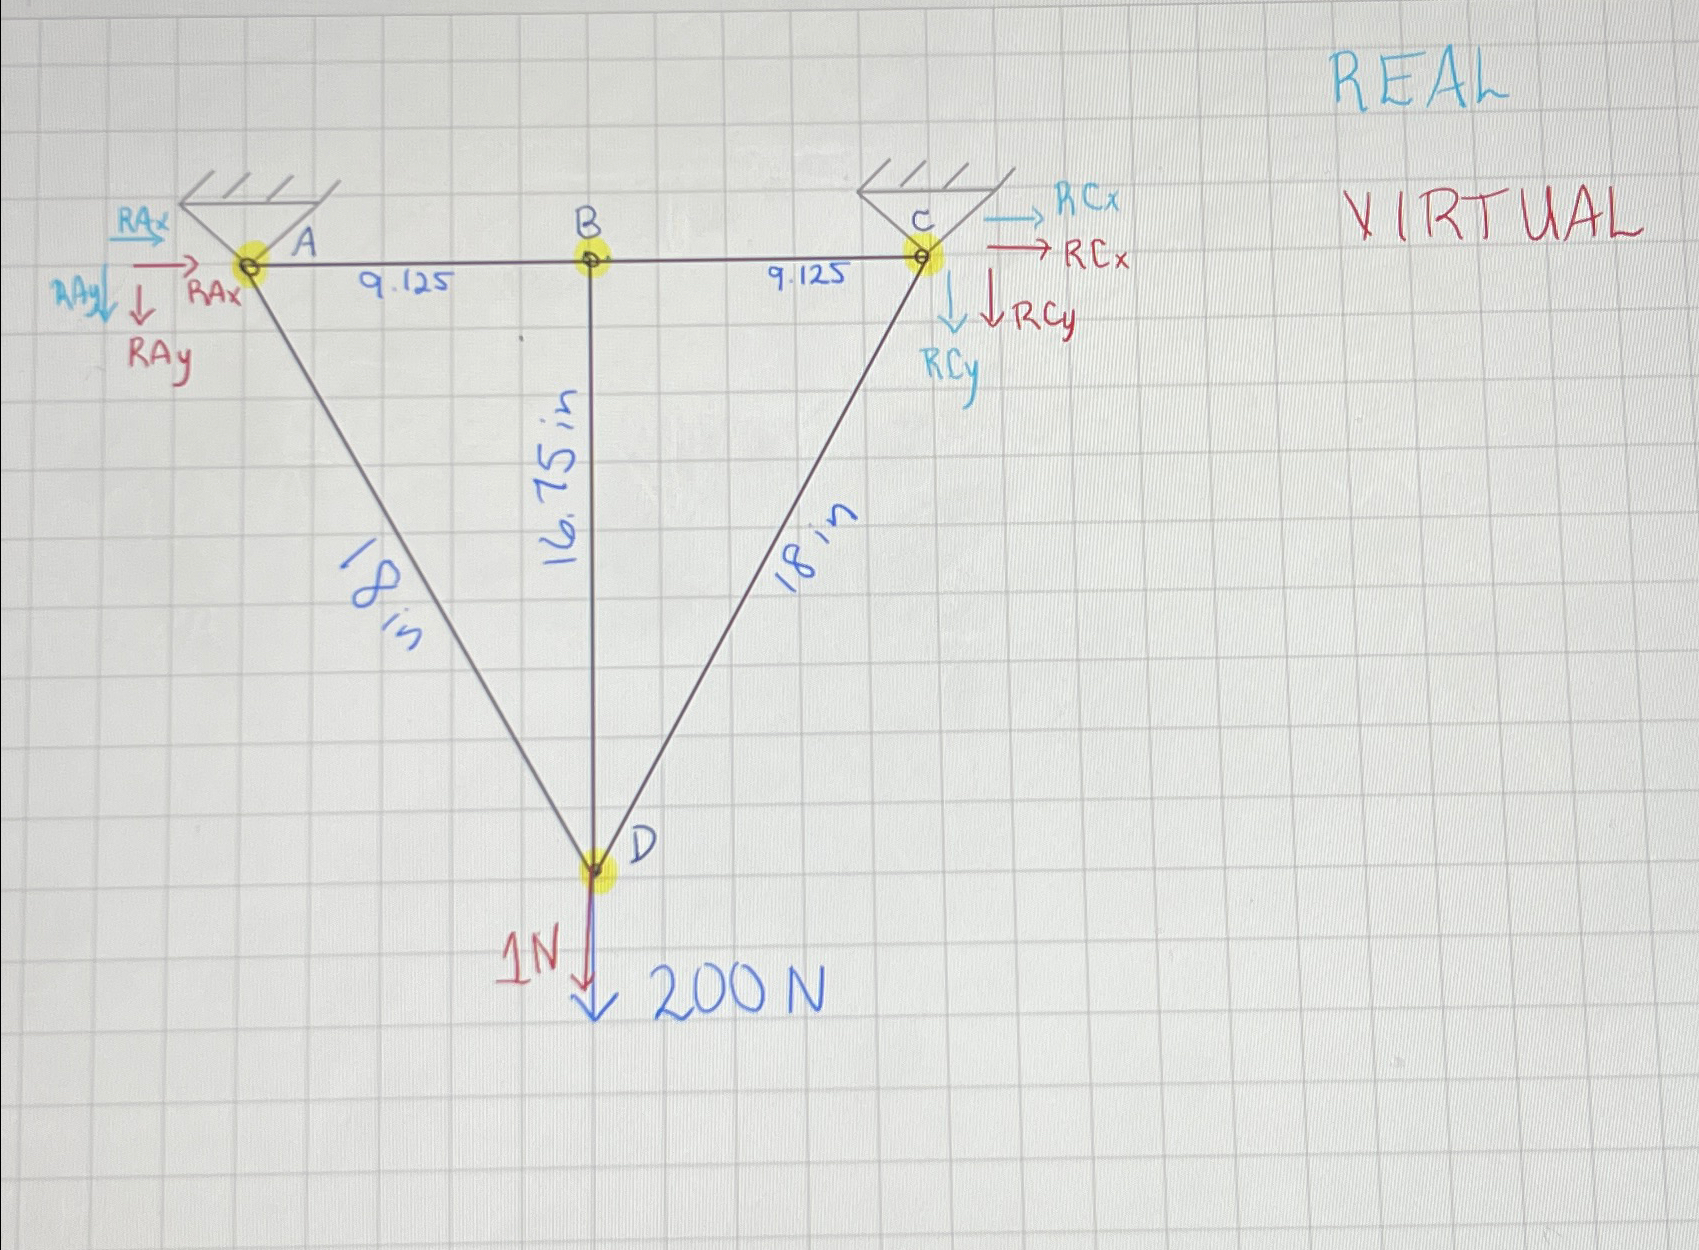 REAL
VIRTUAL
RAx
RAy
RAx
RAy
A
B
C
9.125
9.125
RCx
RCx
RCy
RCy
16.75 in
18 in
18 in
D
1N
200 N